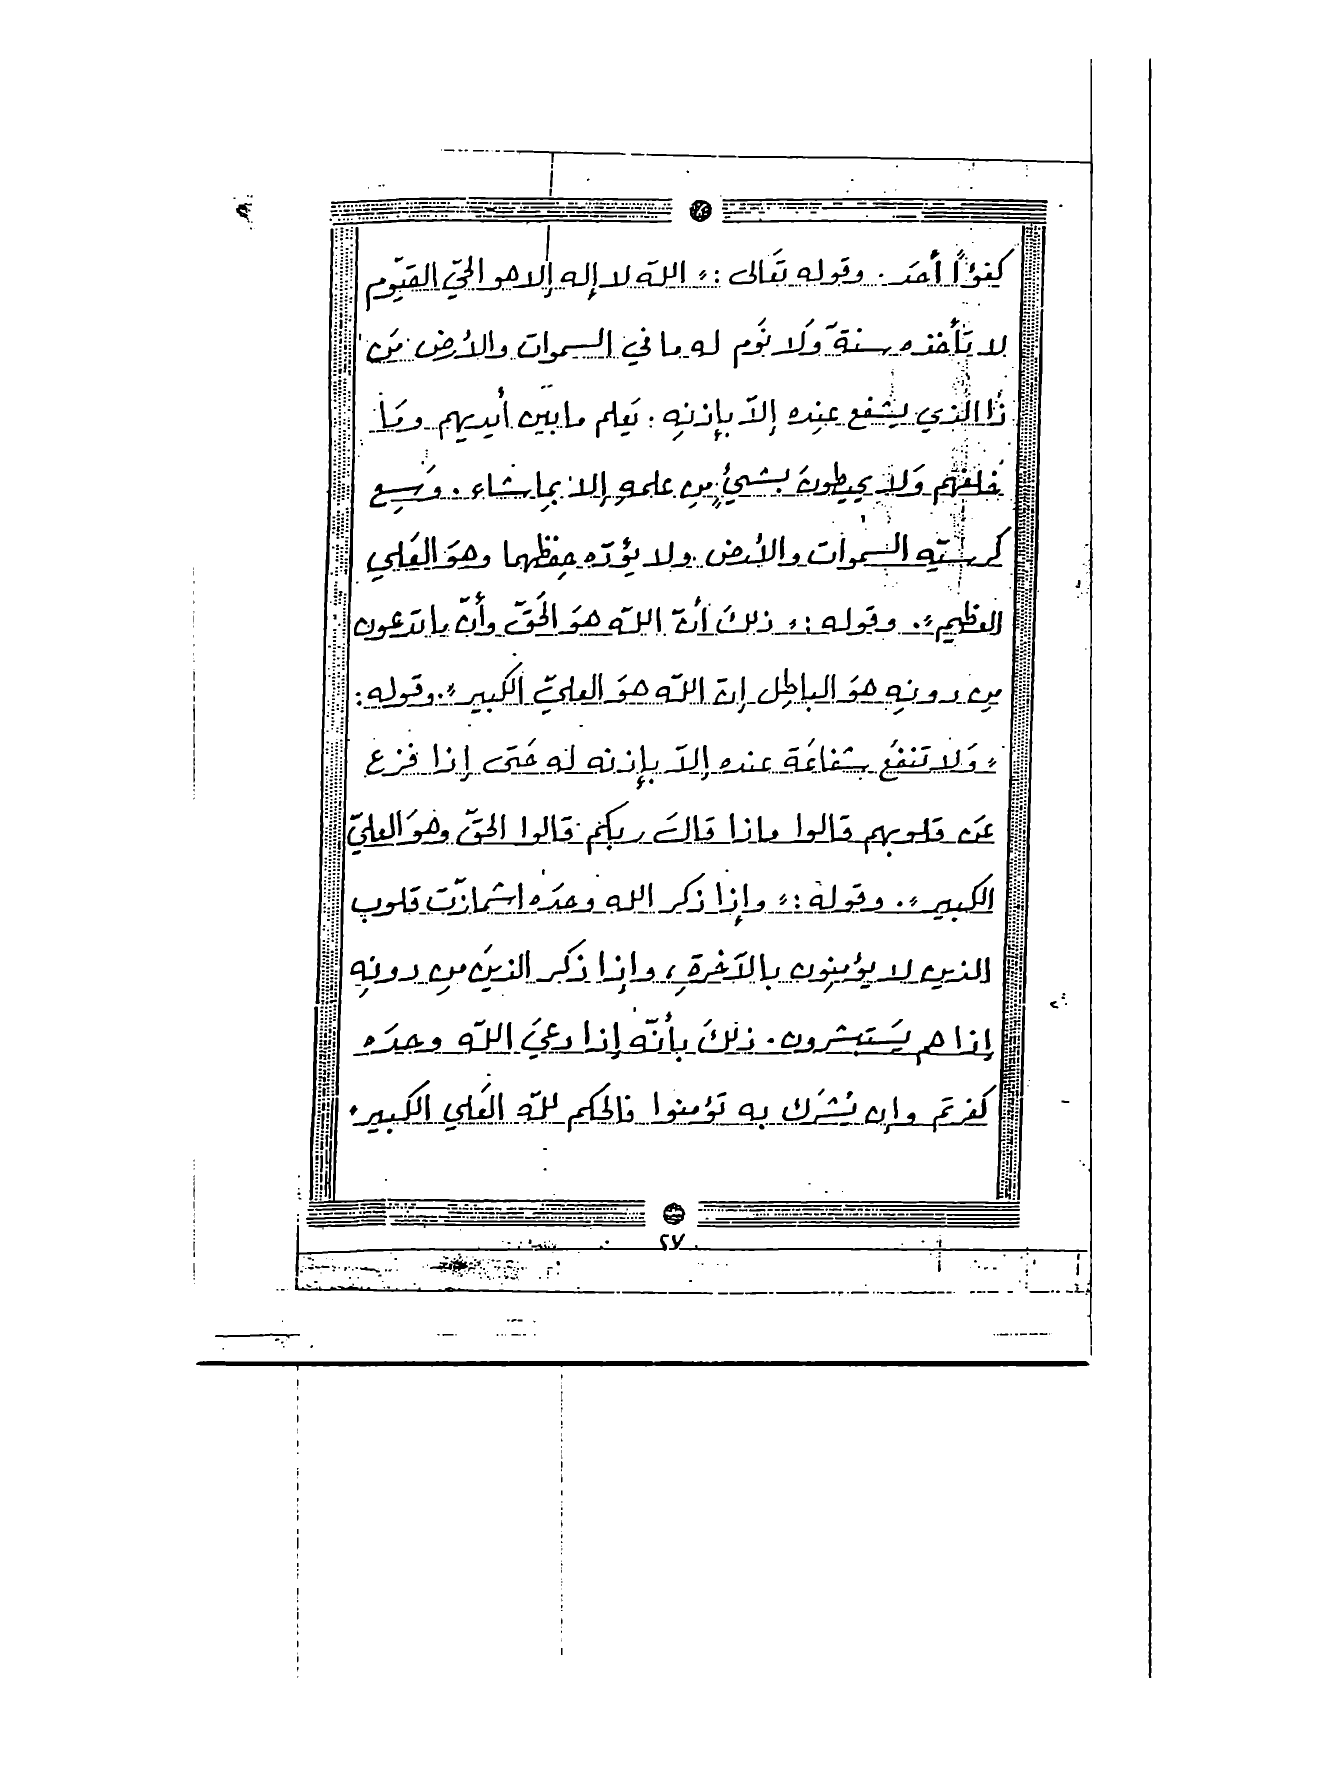 كفؤاً أحَد. وقوله تَعالى: « اللّه لا إله إلا هو الحيّ القيّوم
لا تَأخذه سنة وَلا نَوم له ما في السموات والأرض مَن
ذا الذي يشفع عنِده إلاّ بإذنِه. يَعلم ما بَين أيديهم ومَا
خلفهم وَلا يحيطونَ بشيءٍ مِن علمهِ إلا بِما شاء. وَسِع
كرسيّه السموات والأرض. ولا يؤدّه حِفظهما وهوَ العَلي
العظيم ». وقوله: « ذلكَ أنّ اللّه هوَ الحَقّ وأنّ ما تدعون
مِن دونِه هوَ الباطِل إنّ اللّه هوَ العليّ الكبير ». وقوله:
« وَلا تنفعُ شفاعَة عنده إلاّ بإذنه له حَتى إذا فزع
عَن قلوبهم قالوا ماذا قالَ ربكم قالوا الحقّ وهوَ العليّ
الكبير ». وقوله: « وإذا ذكر الله وحدَه اشمأزّت قلوب
الذين لا يؤمِنون بالآخرةِ، وإذا ذكر الذينَ مِن دونِه
إذا هم يَستَبشرون. ذلكَ بأنّه إذا دعيَ اللّه وحدَه
كفرتم وإن يُشرَك به تؤمنوا فالحكم للّه العَلي الكبير »
٢٧